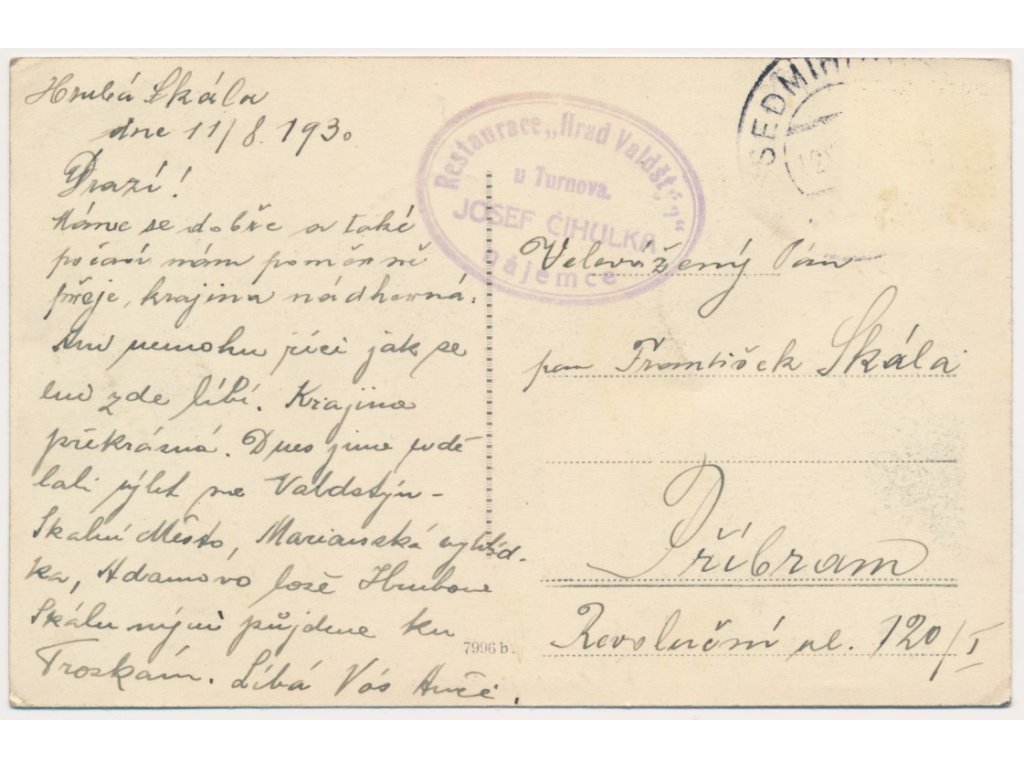 Hrubá Skála
dne 11/8. 1930
Drazí!
Máme se dobře a také
počasí nám poměrně
přeje, krajina nádherná.
Ani nemohu říci jak se
mi zde líbí. Krajina
překrásná. Dnes jsme udě
lali výlet na Valdštýn -
Skalní Město, Marianská vyhlíd-
ka, Adamovo lože Hrubou
Skálu nyní půjdeme ku
Troskám. Líbá Vás
Restaurace „Hrad Valdšt.
u Turnova.
JOSEF ČIHULKA
nájemce
SEDMIH
Velevážený Pán
pan František Skála
Příbram
Revoluční ul. 120/I
7996 b.